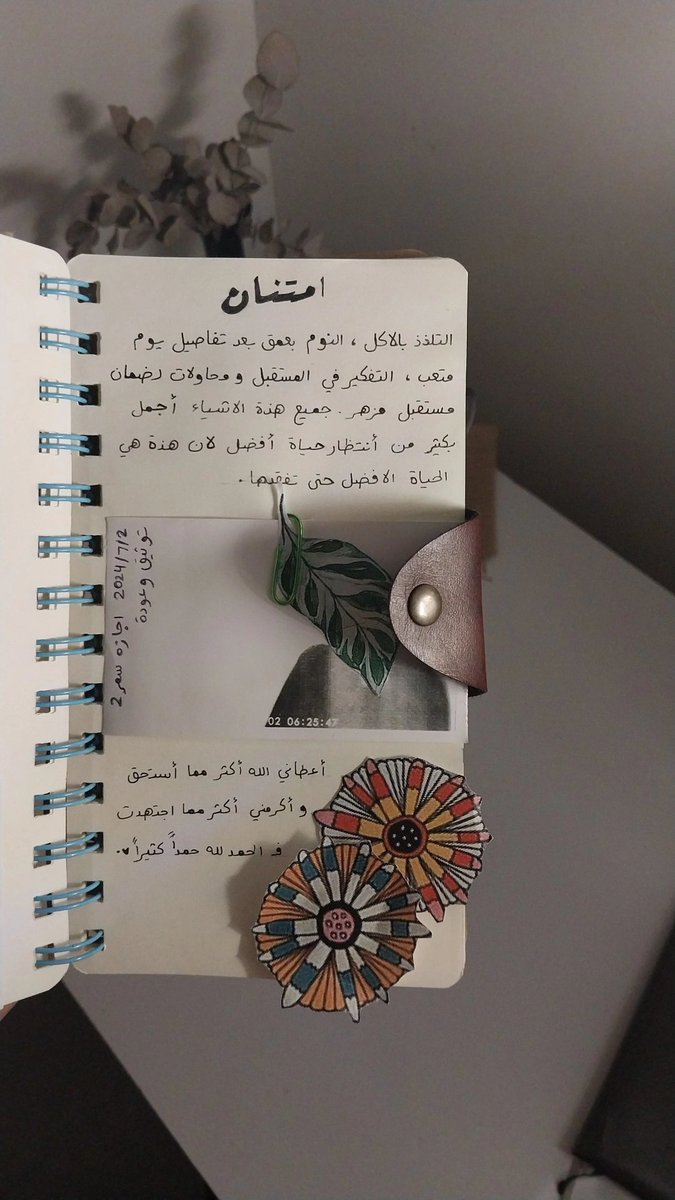 امتنان
التلذذ بالاكل ، النوم بعمق بعد تفاصيل يوم
متعب ، التفكير في المستقبل و محاولات لضمان
مستقبل مزهر . جميع هذة الاشياء أجمل
بكثير من أنتظار حياة أفضل لان هذة هي
الحياة الافضل حتى تفقدها .
توثيق وعودة
2024/7/2 اجازه سمر2
02 06:25:47
أعطاني الله أكثر مما أستحق
و أكرمني أكثر مما اجتهدت
فـ الحمد لله حمداً كثيراً ♥.